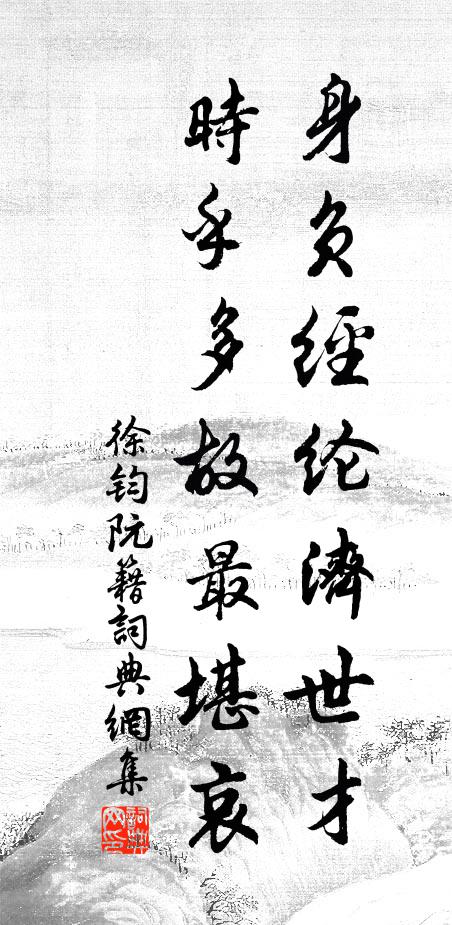 身负經纶濟世才
時乎多故最堪哀
徐钧阮籍詞典網集